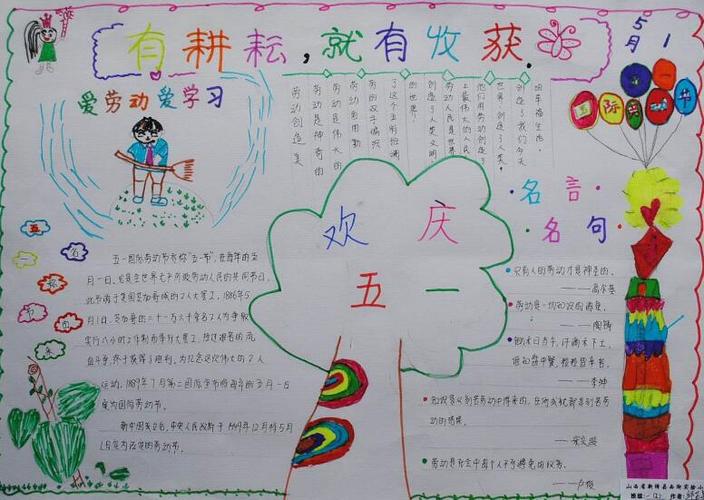 有耕耘,就有收获.
5月1
国际劳动节
爱劳动爱学习
劳动创造美
劳动是神奇的
劳动是伟大的
劳动者用勤
劳的双手编织
了这个五彩斑斓
的世界
创造了人类文明
劳动人民是世界
上最伟大的人民
他们用劳动创造了
世界,创造了人类,
创造了我们今天
的幸福生活。
欢庆
五一
名言
名句
只有人的劳动才是神圣的。
——高尔基
劳动是一切知识的源泉。
——陶铸
锄禾日当午,汗滴禾下土,
谁知盘中餐,粒粒皆辛苦。
——李绅
知识是从刻苦劳动中得来的,任何成就都是刻苦劳
动的结果。
——宋庆龄
劳动是社会中每个人不可避免的义务。
——卢梭
五
一
的
节
由
来
五一国际劳动节亦称"五一节",在每年的五
月一日。它是全世界无产阶级劳动人民的共同节日。
此节源于美国芝加哥城的工人大罢工。1886年5
月1日,芝加哥的二十一万六千余名工人为争取
实行八小时工作制而举行大罢工,经过艰苦的流
血斗争,终于获得了胜利。为纪念这次伟大的工人
运动,1889年7月第二国际宣布将每年的五月一日
定为国际劳动节。
新中国成立后,中央人民政府于1949年12月将5月
1日定为法定的劳动节。